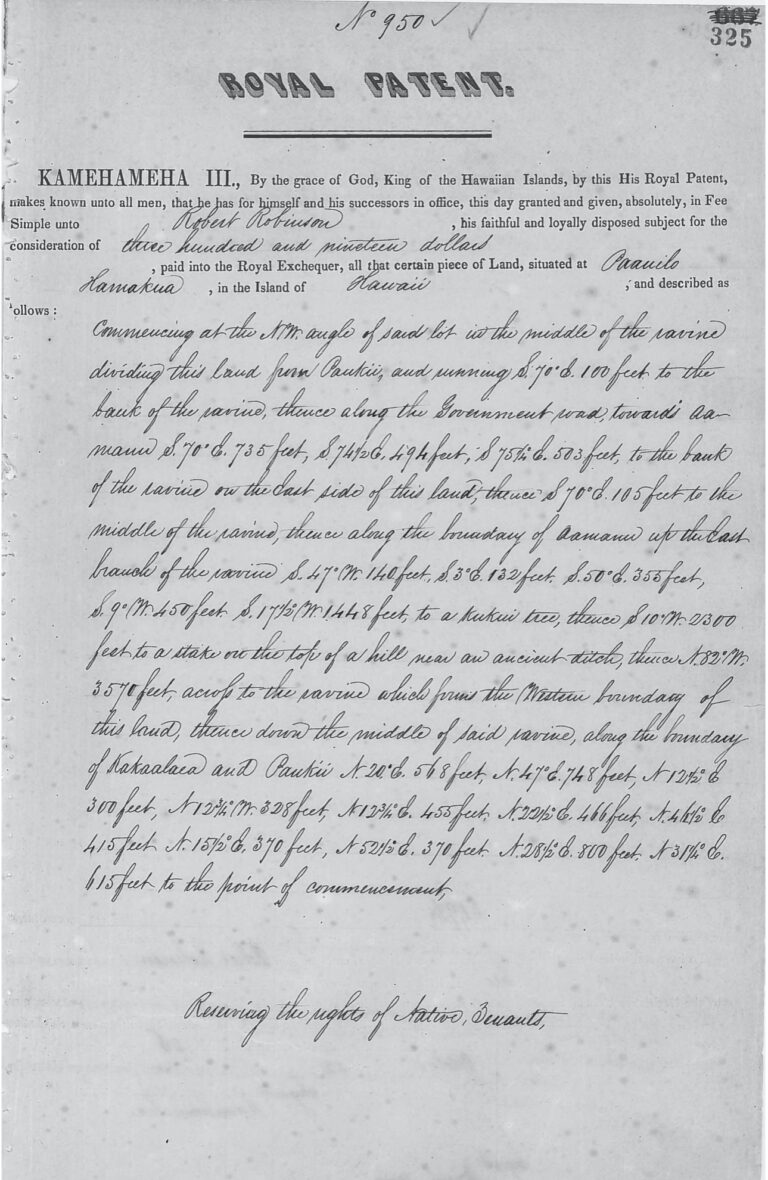 No 950
325
ROYAL PATENT.
KAMEHAMEHA III., By the grace of God, King of the Hawaiian Islands, by this His Royal Patent,
makes known unto all men, that he has for himself and his successors in office, this day granted and given, absolutely, in Fee
Simple unto Robert Robinson , his faithful and loyally disposed subject for the
consideration of three hundred and nineteen dollars
, paid into the Royal Exchequer, all that certain piece of Land, situated at Paauilo
Hamakua , in the Island of Hawaii , and described as
follows :
Commencing at the N.W. angle of said lot in the middle of the ravine
dividing this land from Paukii, and running S. 70° E. 100 feet to the
bank of the ravine, thence along the Government road, towards Aa-
manu S. 70° E. 735 feet, S 74½ E. 494 feet, S 75¼° E. 503 feet, to the bank
of the ravine on the East side of this land, thence S 70° E. 105 feet to the
middle of the ravine, thence along the boundary of Aamanu up the East
branch of the ravine S. 47° W. 140 feet, S. 3° E. 132 feet. S. 50° E. 355 feet,
S. 9° W. 450 feet. S. 17½° W. 1448 feet, to a Kukui tree, thence S 10° W. 2300
feet to a stake on the top of a hill near an ancient ditch, thence N. 82° W.
3570 feet, across to the ravine which forms the Western boundary of
this land, thence down the middle of said ravine, along the boundary
of Kakaalaea and Paukii N. 20° E. 568 feet, N. 47° E. 748 feet, N 12½° E
300 feet, N 12¾° W. 328 feet, N 12¾° E. 455 feet, N. 22½° E. 466 feet, N. 46½° E
415 feet N. 15½° E. 370 feet, N 52½° E. 370 feet. N. 28½° E. 800 feet. N 31¼° E.
615 feet to the point of commencement,
Reserving the rights of Native Tenants,